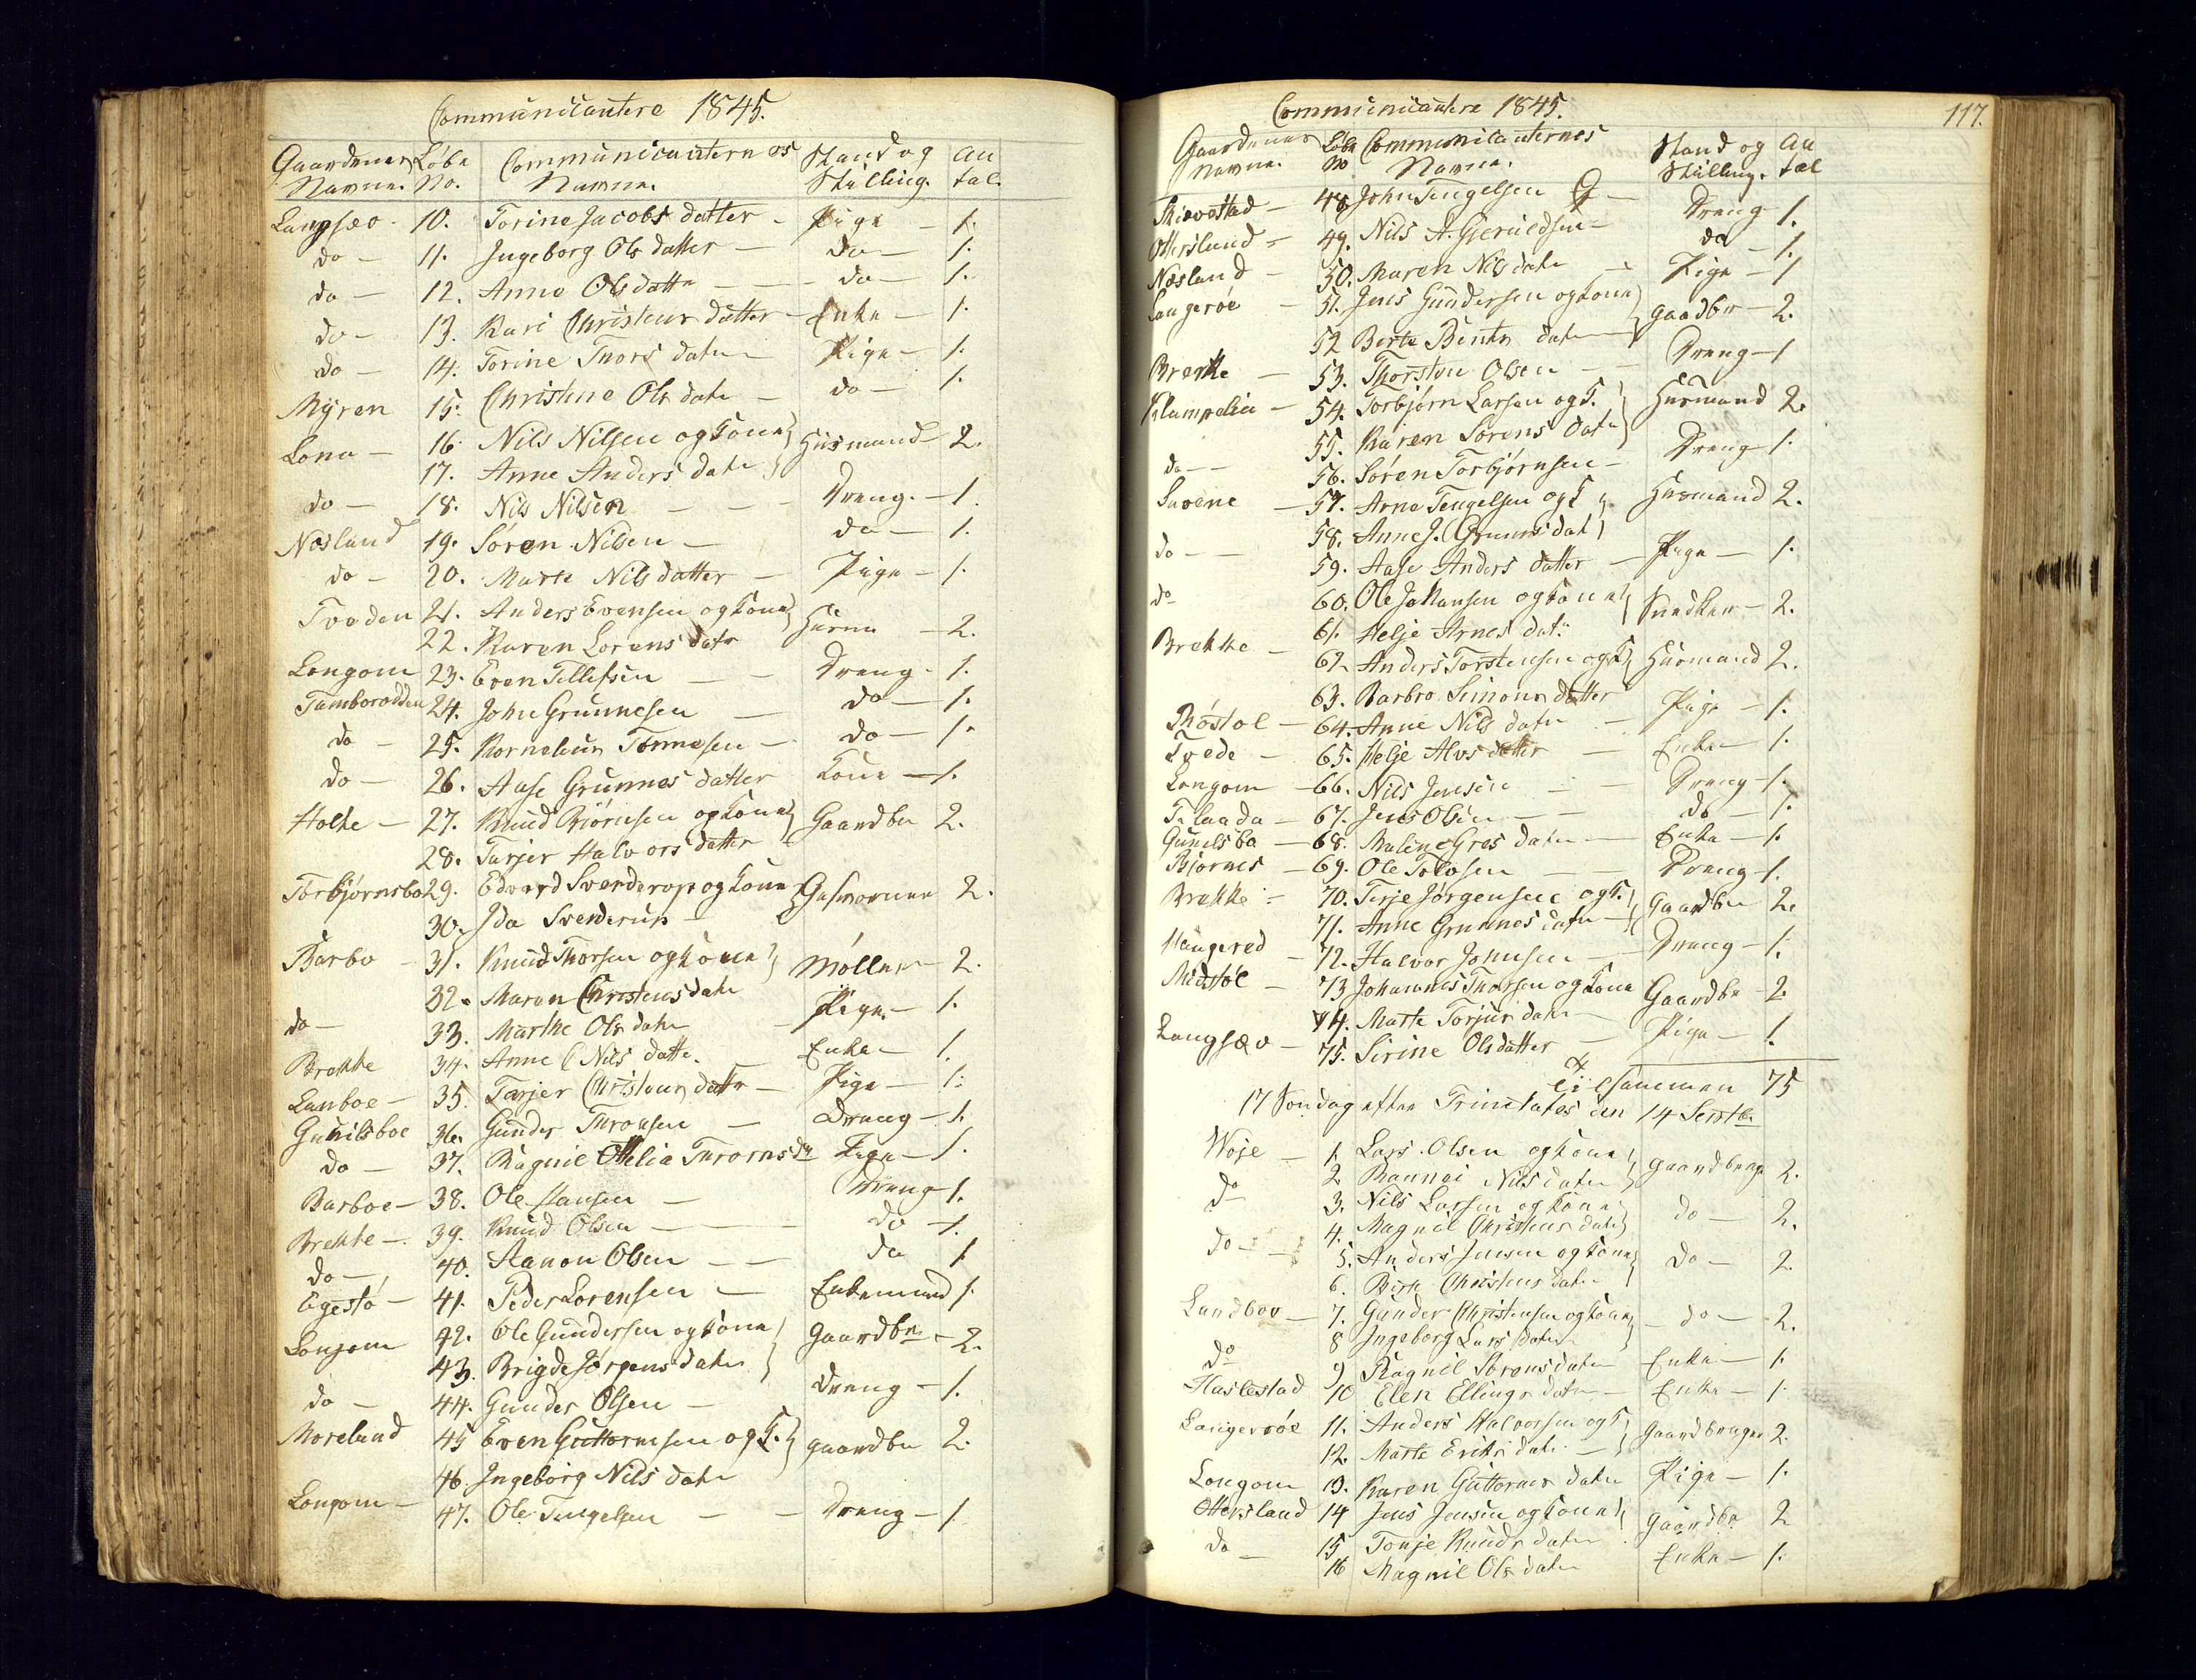 Communicantere 1845.
Gaardenes Løbe Communicanternes Stand og An
Navne. No. Navne. Stilling. tal.
Langsæv - 10. Torine Jacobs datter - Pige - 1.
do - 11. Ingeborg Ols datter - do - 1.
do - 12. Anne Olsdatter - do - 1.
do - 13. Kari Christens datter - Enke - 1.
do - 14. Torine Thors datr - Pige - 1.
Myren 15. Christine Ols datr - do - 1.
Lona - 16. Nils Nilsen og Kone Husmand - 2.
17. Anne Anders datr
do - 18. Nils Nilsen - Dreng. - 1.
Næsland 19. Søren Nilsen - do - 1.
do - 20. Marte Nils datter - Pige - 1.
Tveden 21. Anders Evensen og Kone Husm - 2.
22. Karen Lorens datr
Longom 23. Even Tellefsen - Dreng - 1.
Tamborodden 24. John Grunnesen - do - 1.
do - 25. Kornelius Tønnesen - do - 1.
do - 26. Aase Grunnes datter Kone - 1.
Holte - 27. Knud Biørnsen og Kone Gaardbr 2.
28. Tarjer Halvors datter
Torbjørnsbo 29. Edvard Sverderup og Kone 2.
30. Ida Sverderup -
Barbo - 31. Knud Thorsen og Kone Møller - 2.
32. Maren Christens datr
do - 33. Marthe Ols datr - Pige - 1.
Brekke 34. Anne Nils datte. Enke - 1.
Lanboe - 35. Tarjer Christens datr - Pige - 1.
Gunilsboe 36. Gunder Thronsen - Dreng - 1.
do - 37. Ragnil Othelia Throns dr Pige - 1.
Barboe - 38. Ole Hansen - Dreng 1.
Brekke - 39. Knud Olsen - do - 1.
do - 40. Hanon Olsen - do 1
Egestø - 41. Peder Lorensen - Enkemand 1.
Longom 42. Ole Gundersen og Kone Gaardbr - 2.
43. Brigde Jørgens datr
do - 44. Gunder Olsen - Dreng - 1.
Moreland 45 Even Guttormsen og K. gaardbr 2.
46. Ingeborg Nils datr
Longom - 47. Ole Tengelsen - Dreng - 1
117.
Communicantere 1845.
Gaardenes Løbe Communicanternes Stand og An
Navne. No Navne. Stilling. tal
48. John Tengelsen - Dreng 1.
Ottersland - 49. Nils A. Gjeruldsen - do - 1.
Næsland - 50. Maren Nils datr - Pige - 1
Langerøe - 51. Jens Gundersen og Kone gaardbr - 2.
52 Berte Bents datr
Brekke - 53. Thorsten Olsen - Dreng - 1
Klumpelin - 54. Torbjørn Larsen og K. Husmand 2.
55. Karen Sørens datr
do - 56. Søren Torbjørnsen - Dreng - 1.
57. Arne Tengelsen og K Husmand 2.
58. Anne J. Grunnsdat
do - 59. Aase Anders datter - Pige - 1.
do 60. Ole Johansen og Kone Snedker - 2.
61. Helje Arnes dat:
Brekke - 62. Anders Torstensen og K Husmand 2.
63. Barbro Simons datter
Røstøl - 64. Anne Nils datr - Pige - 1.
Tvede - 65. Helje Alvs datter - Enke - 1.
Longom - 66. Nils Jensen - Dreng - 1.
67. Jens Olsen - do - 1.
Gunilsbo - 68. Malene Gres datr - Enke - 1.
Bjørnes - 69. Ole Tolvsen - Dreng - 1.
Brekke - 70. Terje Jørgensen og K. Gaardbr 2.
71. Anne Grunnes datr
Haugered - 72. Halvor Johnsen - Dreng - 1.
Midtøl - 73 Johannes Thorsen og Kone Gaardbr - 2.
74. Marte Torjus datr -
Langsæv - 75. Sirine Olsdatter - Pige - 1.
tilsammen 75
17 Søndag efter Trinitates den 14 Septbr.
Woje - 1. Lars Olsen og Kone gaardbruger 2.
2. Rannei Nils datr
do 3. Nils Larsen og Kone do - 2.
4. Magnil Christens datr
do - 5. Anders Jensen og Kone do - 2.
6. Berte Christens datr
Landboe - 7. Gunder Christensen og Kone - do - 2.
8 Ingeborg Lars datr
do 9 Ragnil Sørensdatr Enke - 1.
Haslestad 10 Elen Ellings datr - Enke - 1.
Langerøe 11. Anders Halvorsen og K Gaardbruger 2.
12. Marte Eriks datr -
Longom 13. Karen Guttorms datr Pige - 1.
Ottersland 14 Jens Jensen og Kone Gaardbr 2
15 Tonje Knuds datr
do - 16 Magnil Ols datr Enke - 1.